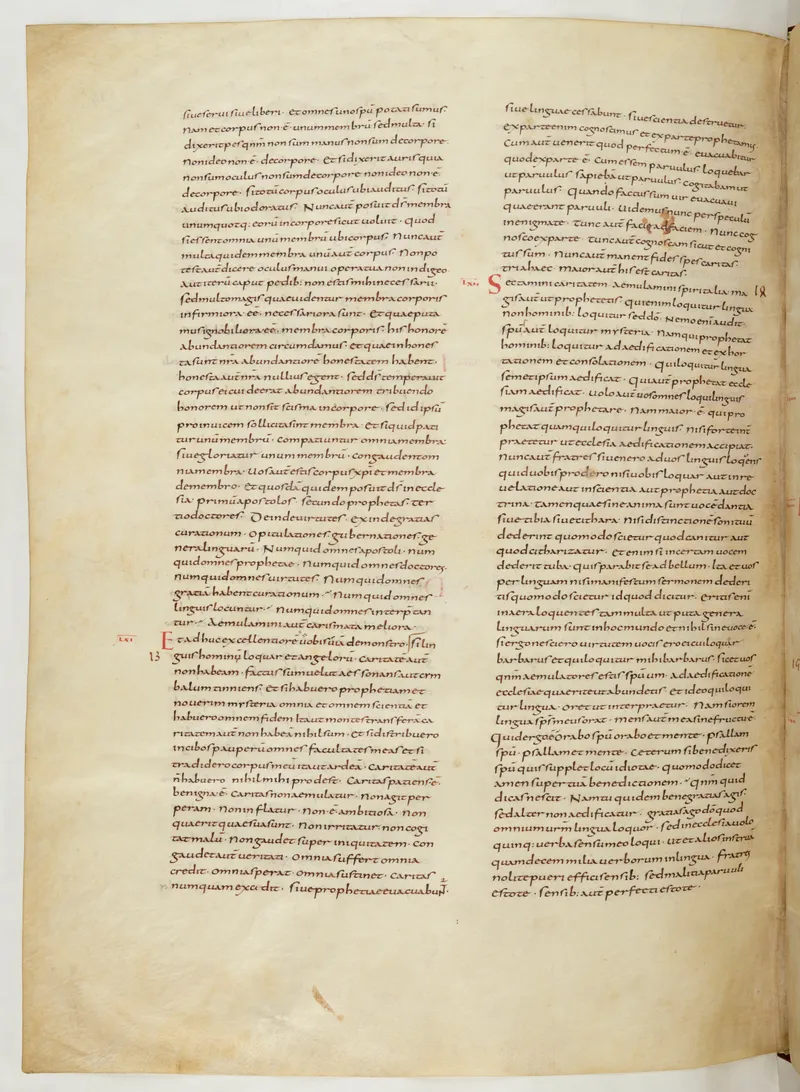 siue serui siue liberi · et omnes uno spu potati sumus ·
nam et corpus non e · unum membru sed multa · si
dixerit pes qnm non sum manus non sum de corpore ·
non ideo non e · de corpore · et si dixerit auris quia
non sum oculus non sum de corpore non ideo non e ·
de corpore · si totu corpus oculus ubi auditus · si totu
auditus ubi odoratus · Nunc aut posuit ds membra
unumquotq· eoru in corpore sicut uoluit · quod
si essent omnia unu membru ubi corpus · Nunc aut
multa quidem membra unu aut corpus · Non po
test aut dicere oculus manui opera tua non indigeo
aut iteru caput pedib: non estis mihi necessarii ·
sed multo magis quae uidentur membra corporis
infirmiora ee · necessariora sunt · et quae puta
mus ignobiliora ee · membra corporis · his honore
abundantiorem circumdamus · et quae inhones
ta sunt nra abundantiore honestatem habent ·
honesta aut nra nullius egent · sed ds temperauit
corpus ei cui deerat abundantiorem tribuendo
honorem ut non sit scisma in corpore · sed id ipsu
pro inuicem sollicita sint membra · et si quid pati
tur unu membru · compatiuntur omnia membra ·
siue gloriatur unum membru · congaudent om
nia membra · Uos aut estis corpus xpi et membra
de membro · et quosda quidem posuit ds in eccle
sia · primu apostolos · secundo prophetas · ter
tio doctores · Deinde uirtutes · exinde gratias
curationum · opitulationes · gubernationes · ge
nera linguaru · Numquid omnes apostoli · num
quid omnes prophetae · numquid omnes doctores ·
numquid omnes uirtutes · Numquid omnes
gratia habent curationum · numquid omnes
linguis locuntur · numquid omnes interptan
tur · Aemulamini aut carismata meliora ·
LXI Et adhuc excellentiore uobis uia demonstro · si lin
13 guis hominu loquar et angeloru · caritate aut
non habeam · factus sum uelut aes sonans aut cym
balum tinniens · et si habuero prophetiam et
nouerim mysteria omnia et omnem scientia et
habuero omnem fidem ita ut montes transfera ca
ritatem aut non habea nihil sum · et si distribuero
in cibos pauperu omnes facultates meas et si
tradidero corpus meu ita ut ardea · caritate aut
n habuero nihil mihi prodest · Caritas patiens e ·
benigna e · Caritas non aemulatur · non agit per
peram · non inflatur · non e ambitiosa · non
quaerit quae sua sunt · Non irritatur non cogi
tat malu · Non gaudet super iniquitatem · con
gaudet aut ueritati · omnia suffert omnia
credit · omnia sperat · omnia sustinet · Caritas
numquam excidit · siue prophetiae euacuabunt ·
siue linguae cessabunt · siue scientia destruetur ·
ex parte enim cognoscimus et ex parte prophetamus
Cum aut uenerit quod perfectum e · euacuabitur
quod ex parte e · Cum essem paruulus loquebar
ut paruulus sapieba ut paruulus cogitabam ut
paruulus · Quando factus sum uir euacuaui
quae erant paruuli · Uidemus nunc per speculu
in enigmate · tunc aut facie ad faciem · Nunc cog
nosco ex parte · tunc aut cognoscam sicut et cogni
tus sum · Nunc aut manent fides spes caritas
tria haec · maior aut his est caritas ·
LXII Sectamini caritatem · aemulamini spiritalia · ma
gis aut ut prophetetis · qui enim loquitur lingua
non hominib: loquitur sed do · Nemo eni audit ·
spu aut loquitur mysteria · Nam qui prophetat
hominib: loquitur ad aedificationem et exhor
tationem et consolationem · qui loquitur lingua
semetipsum aedificat · qui aut prophetat eccle
siam aedificat · uolo aut uos omnes loqui linguis
magis aut prophetare · Nam maior e · qui pro
phetat quam qui loquitur linguis · nisi forte int
praetetur ut ecclesia aedificationem accipiat ·
Nunc aut fratres si uenero ad uos linguis loquens
quid uobis prodero nisi uobis loquar aut in re
uelatione aut in scientia aut prophetia aut doc
trina · tamen quae sine anima sunt uoce dantia
siue tibia siue cithara · nisi distinctione sonituu
dederint quomodo scietur quod canitur aut
quod citharizatur · et enim si incertam uocem
dederit tuba · quis parabit se ad bellum · Ita et uos
per linguam nisi manifestum sermonem dederi
tis quomodo scietur id quod dicitur · eritis eni
in aera loquentes tam multa ut puta genera
linguarum sunt in hoc mundo et nihil sine uoce e ·
si ergo nesciero uirtutem uocis ero ei cui loquar
barbarus et qui loquitur mihi barbarus · sic et uos
qnm aemulatores estis spu um · ad aedificatione
ecclesiae quaerite ut abundetis · et ideo qui loqui
tur lingua · oret ut interpraetur · Nam si orem
lingua sps meus orat · mens aut mea sine fructu e ·
Quid ergo e Orabo spu orabo et mente · psallam
spu · psallam et mente · Ceterum si benedixeris
spu quis supplet locu idiotae · quomodo dicet
amen super tua benedictionem · qnm quid
dicas nescit · Nam tu quidem bene gratias agis ·
sed alter non aedificatur · gratias ago do quod
omnium urm lingua loquor · sed in ecclesia uolo
quinq: uerba sensu meo loqui · ut et alios instrua
quam decem milia uerborum in lingua · fratres
nolite pueri effici sensib: sed malitia paruuli
estote · sensib: aut perfecti estote ·